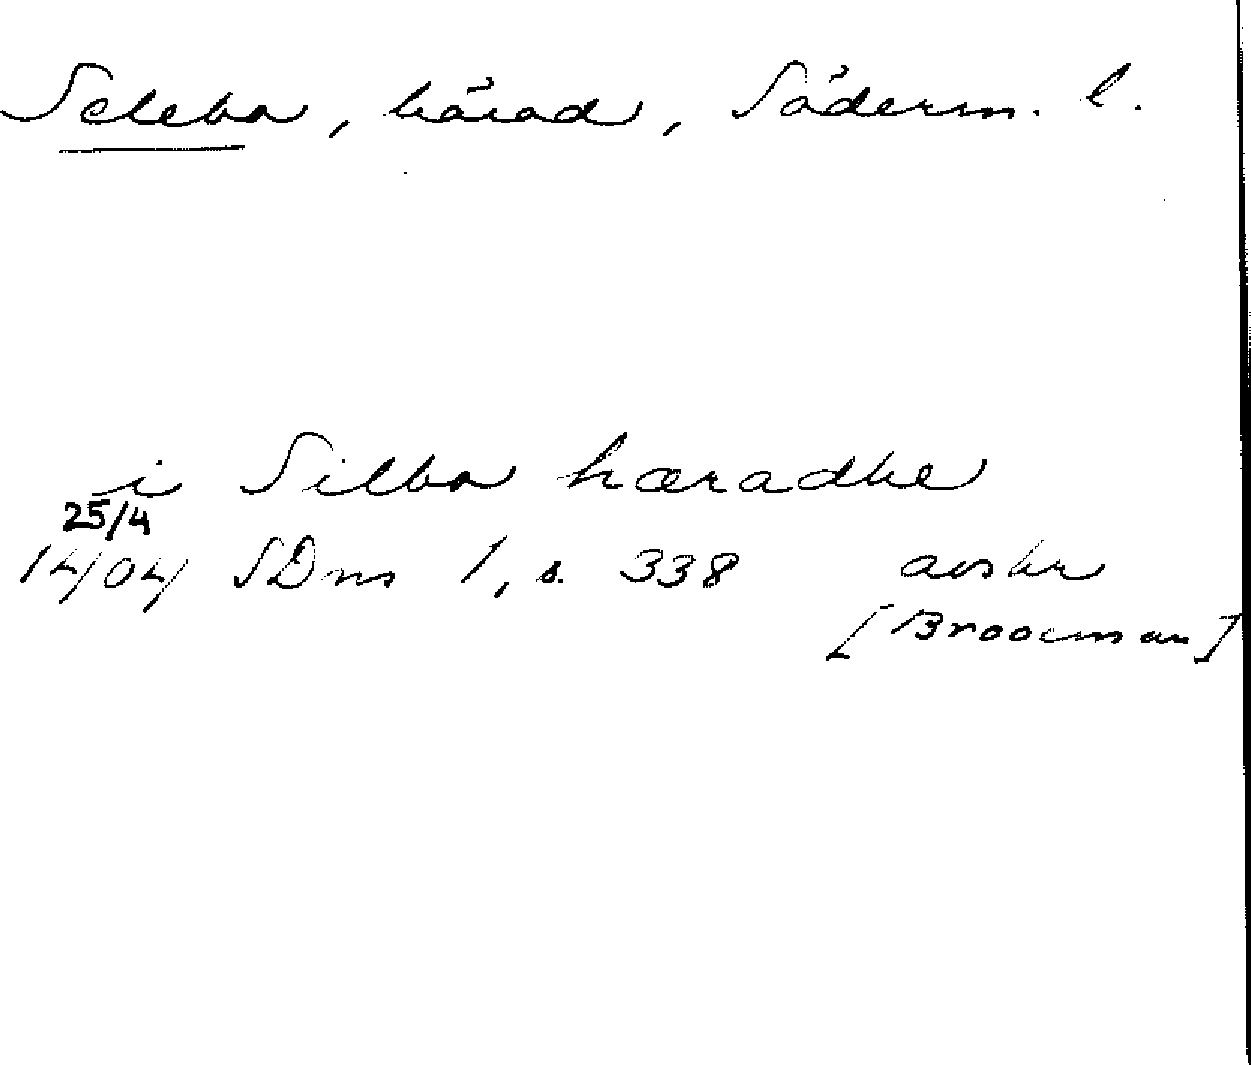 Selebo, härad, Söderm. l.
i Silbo hæradhe
25/4
1404 SDns 1, s. 338 avskr
[Brooeman]